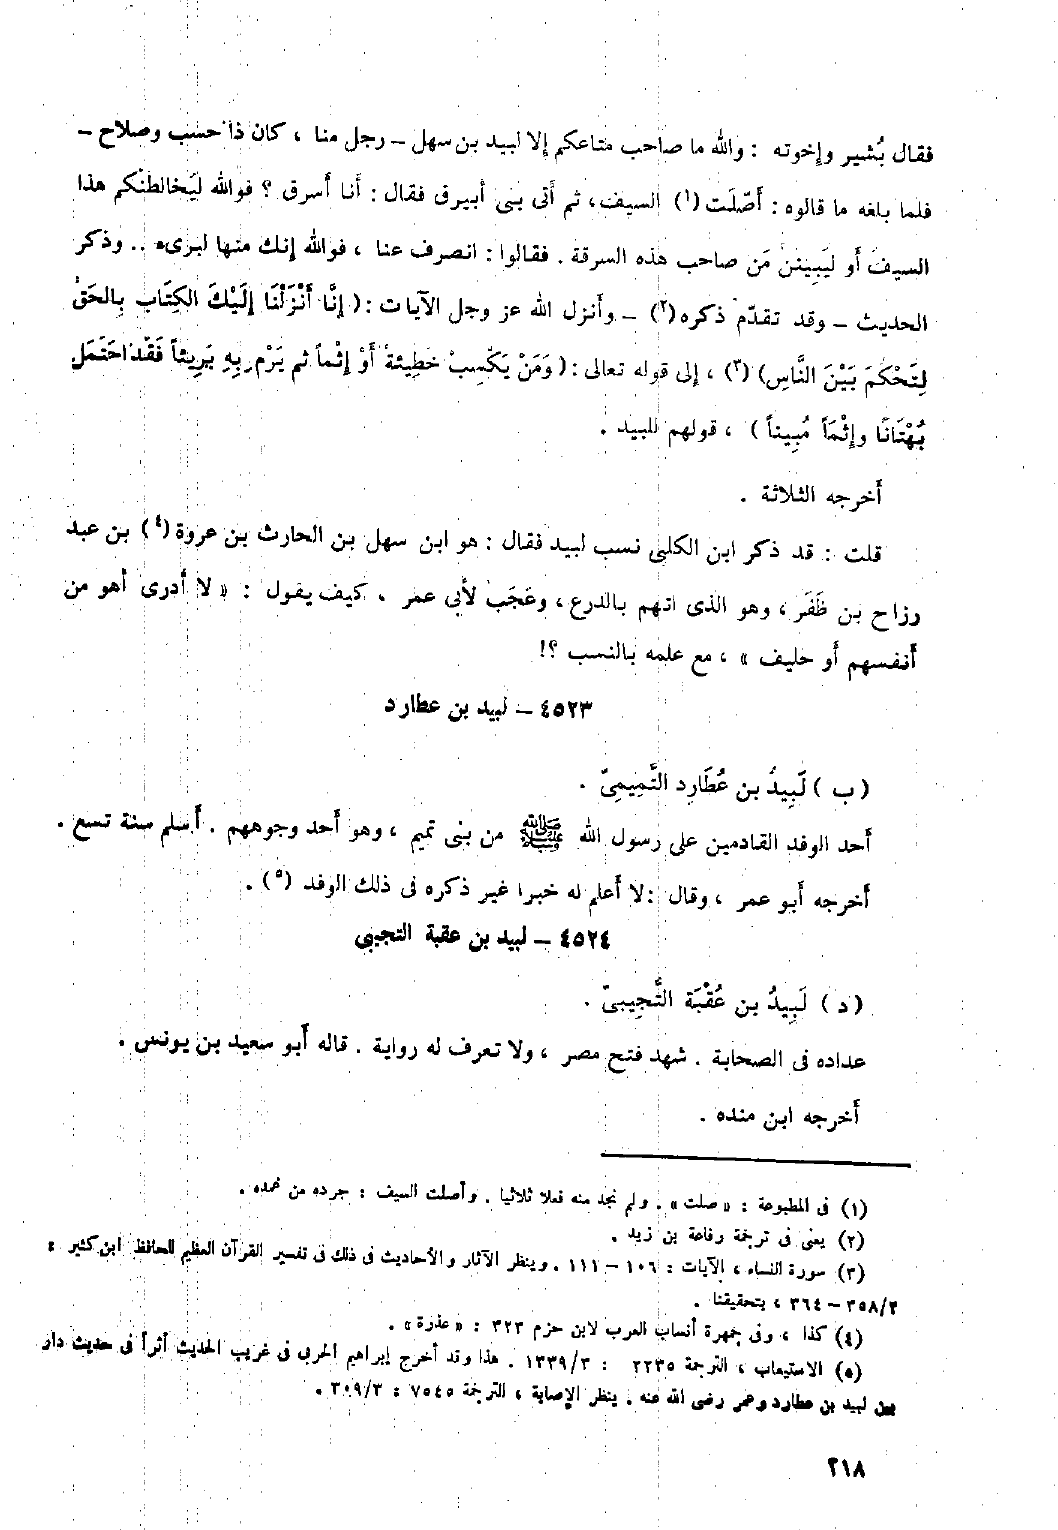 فقال بُشير وإخوته : والله ما صاحب متاعكم إلا لبيد بن سهل – رجل منا ، كان ذا حسب وصلاح –
فلما بلغه ما قالوه : أَصْلَت (١) السيف ، ثم أَتى بنى أبيرق فقال : أنا أَسرق ؟ فوالله لَيخالطنْكم هذا
السيفَ أو ليَبِيننّ مَن صاحب هذه السرقة . فقالوا : انصرف عنا ، فوالله إنك منها لبرىء .. وذكر
الحديث – وقد تقدّم ذكره (٢) – وأنزل الله عز وجل الآيات : ( إِنَّا أَنْزَلْنَا إِلَيْكَ الكِتَابَ بِالحَقِّ
لِتَحْكُمَ بَيْنَ النَّاسِ) (٣) ، إلى قوله تعالى : ( وَمَنْ يَكْسِبْ خَطِيئةً أَوْ إِثْماً ثم يَرْمِ بِهِ بَرِيئاً فَقَدْ احْتَمَلَ
بُهْتَانًا وإِثْمَاً مُبِيناً ) ، قولهم للبيد .
أخرجه الثلاثة .
قلت : قد ذكر ابن الكلبى نسب لبيد فقال : هو ابن سهل بن الحارث بن عروة (٤) بن عبد
رزاح بن ظَفَر ، وهو الذى اتهم بالدرع ، وعَجَب لأبى عمر ، كيف يقول : « لا أدرى أهو من
أنفسهم أو حليف » ، مع علمه بالنسب ؟!
٤٥٢٣ – لبيد بن عطارد
( ب ) لَبِيدُ بن عُطَارِد التَّمِيمِىّ .
أحد الوفد القادمين على رسول الله ﷺ من بنى تميم ، وهو أحد وجوههم . أسلم سنة تسع .
أخرجه أبو عمر ، وقال : لا أعلم له خبرا غير ذكره فى ذلك الوفد (٥) .
٤٥٢٤ – لبيد بن عقبة التجيبى
( د ) لَبِيدُ بن عُقْبَة التُّجِيبىّ .
عداده فى الصحابة . شهد فتح مصر ، ولا تعرف له رواية . قاله أبو سعيد بن يونس .
أخرجه ابن منده .
(١) فى المطبوعة : « صلت » . ولم نجد منه فعلا ثلاثيا . وأصلت السيف : جرده من غمده .
(٢) يعنى فى ترجمة رفاعة بن زيد .
(٣) سورة النساء ، الآيات : ١٠٦ – ١١١ . وينظر الآثار والأحاديث فى ذلك فى تفسير القرآن العظيم للحافظ ابن كثير :
٣٥٨/٢ – ٣٦٤ ، بتحقيقنا .
(٤) كذا ، وفى جمهرة أنساب العرب لابن حزم ٣٢٣ : « عذرة » .
(٥) الاستيعاب ، الترجمة ٢٢٣٥ : ١٣٣٩/٣ . هذا وقد أخرج إبراهيم الحربى فى غريب الحديث أثراً فى حديث دار
بين لبيد بن عطارد وعمر رضى الله عنه . ينظر الإصابة ، الترجمة ٧٥٤٥ : ٣٠٩/٣ .
٢١٨